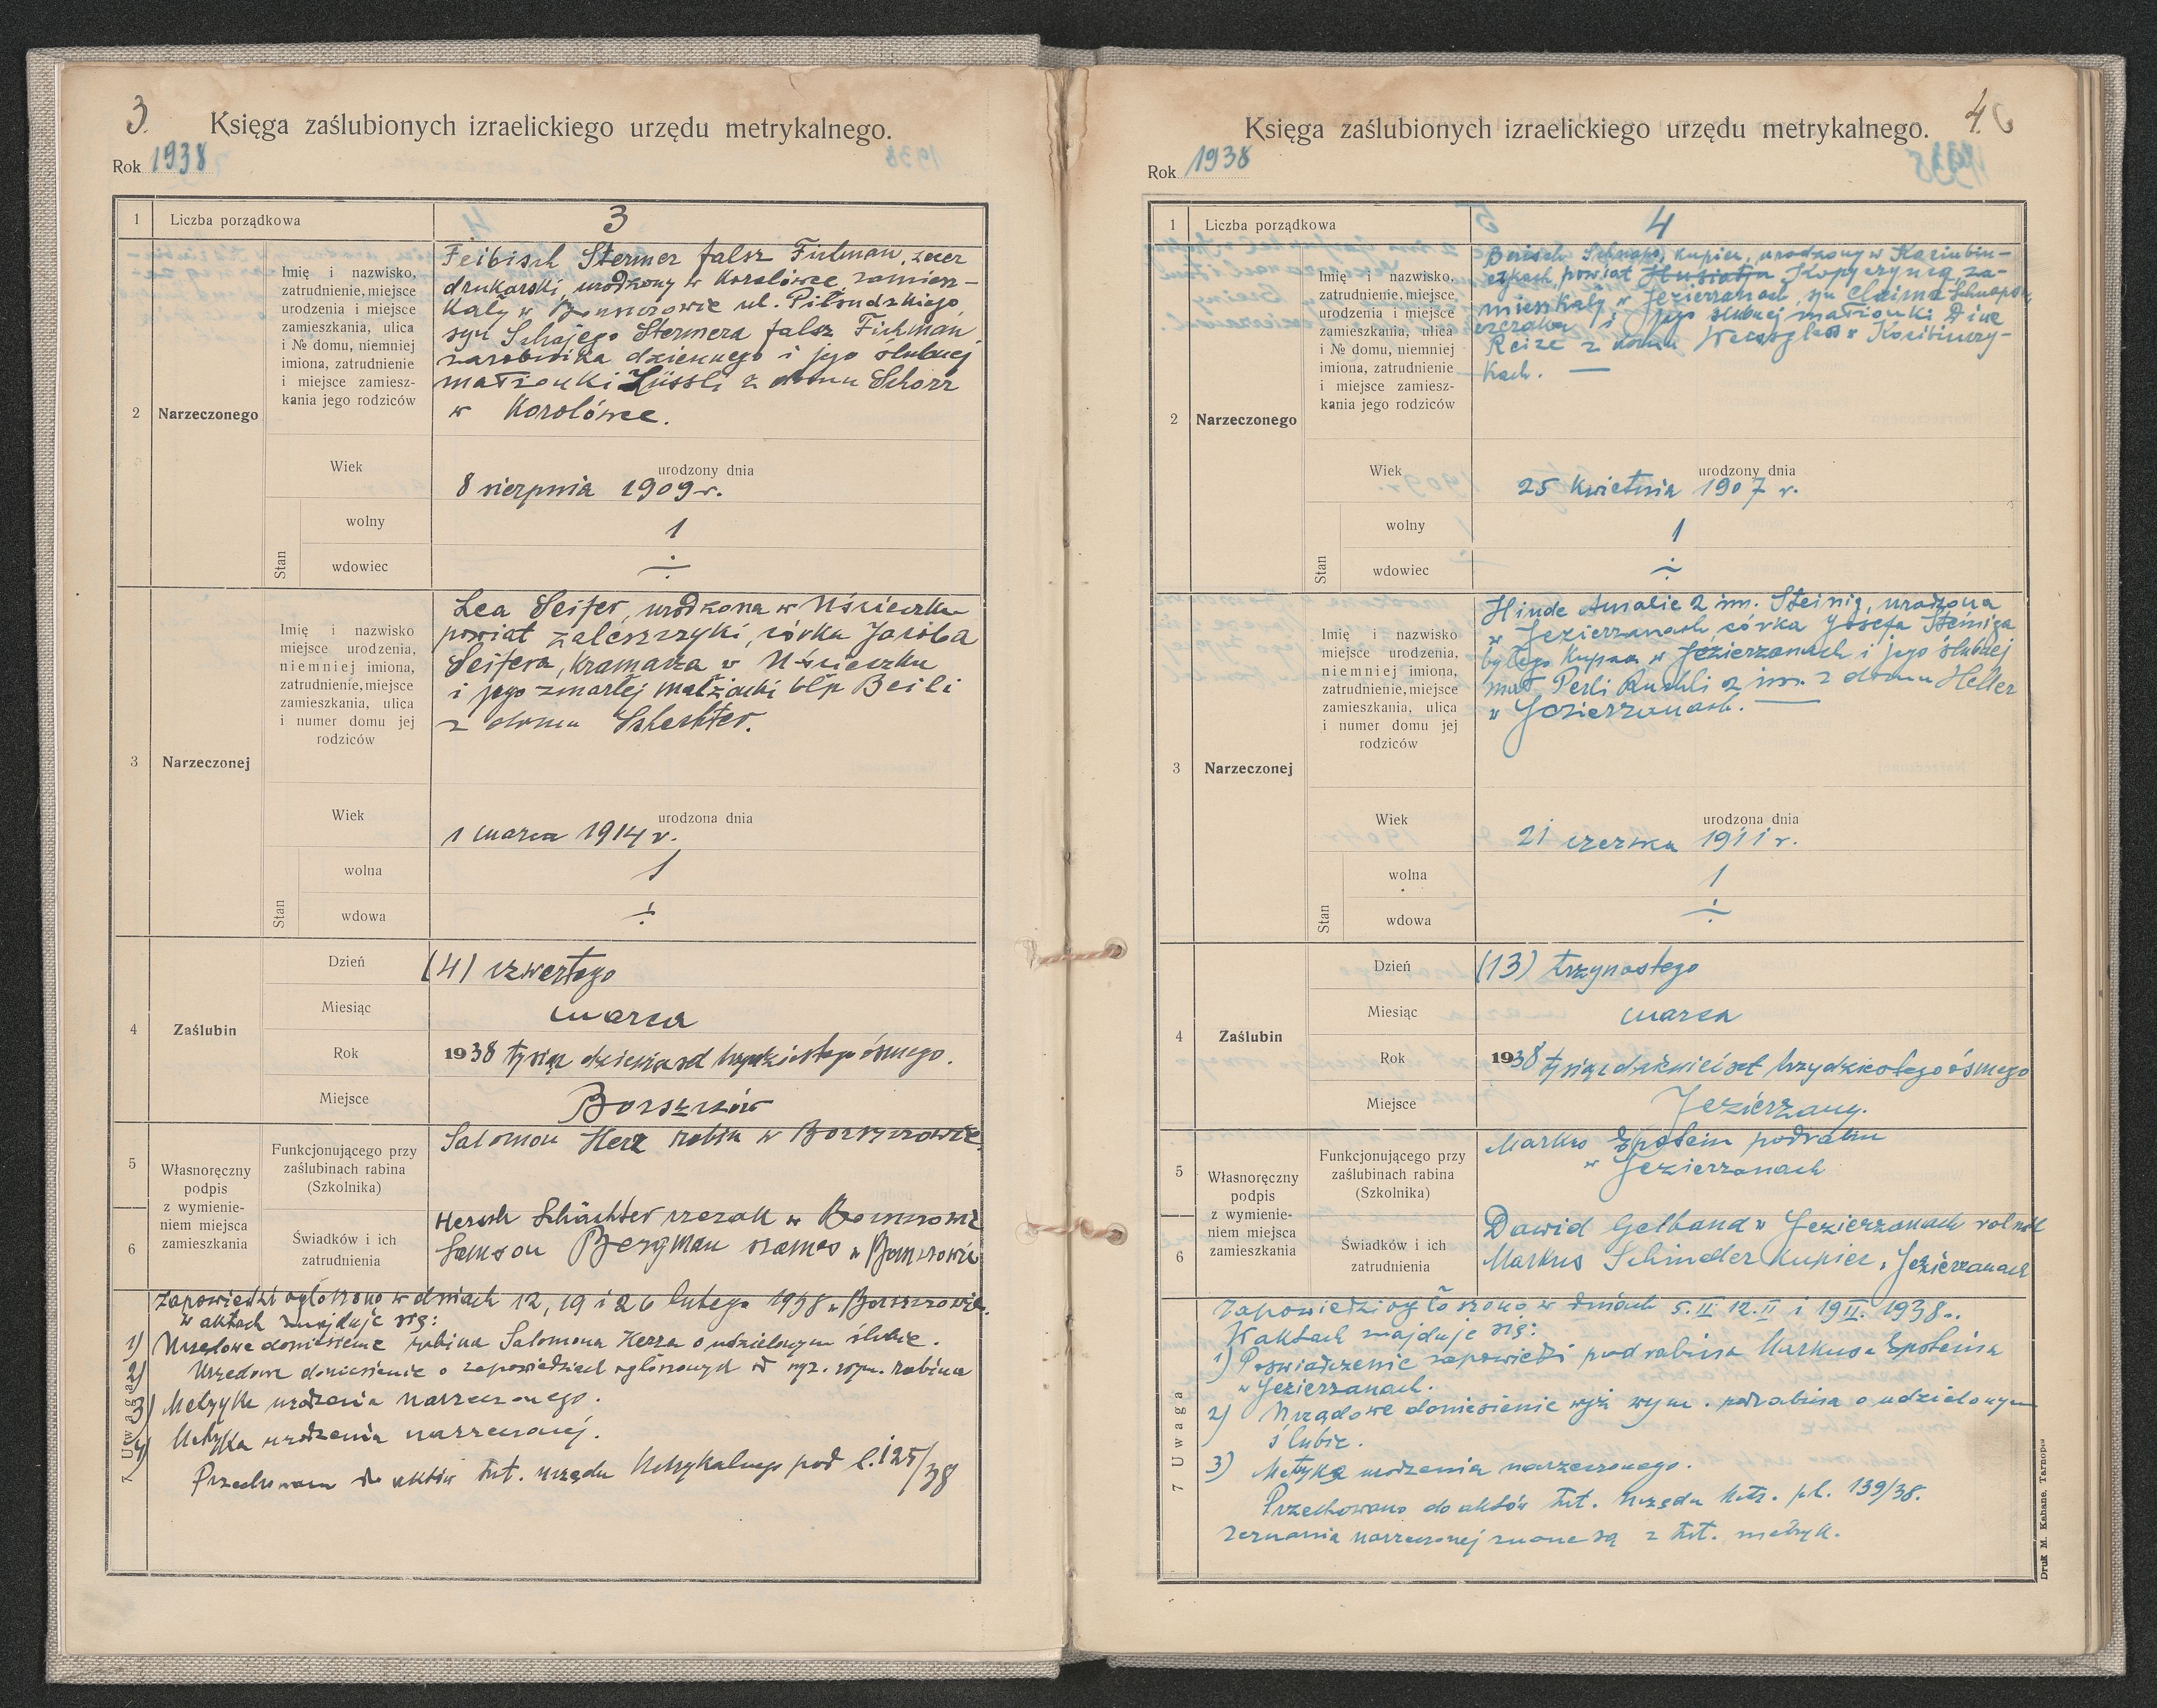 3.
Księga zaślubionych izraelickiego urzędu metrykalnego.
Rok 1938
1 Liczba porządkowa 3
2 Narzeczonego
Imię i nazwisko,
zatrudnienie, miejsce
urodzenia i miejsce
zamieszkania, ulica
i № domu, niemniej
imiona, zatrudnienie
i miejsce zamiesz-
kania jego rodziców
Feibisch Stermer falsz Fuhman, zecer
drukarski, urodzony w Korolówce, zamiesz-
kały w Borszczowie ul. Piłsudskiego
syn Schajego Stermera falsz Fuhman
zarobnika dziennego i jego ślubnej
małżonki Züssli z domu Schorr
w Korolówce.
Wiek urodzony dnia
8 sierpnia 1909 r.
Stan
wolny 1
wdowiec ÷
3 Narzeczonej
Imię i nazwisko
miejsce urodzenia,
niemniej imiona,
zatrudnienie, miejsce
zamieszkania, ulica
i numer domu jej
rodziców
Lea Seifer, urodzona w Uścieczku
powiat Zaleszczyki, córka Jakóba
Seifera, kramarza w Uścieczku
i jego zmarłej małżonki błp Beili
z domu Schechter.
Wiek urodzona dnia
1 marca 1914 r.
Stan
wolna 1
wdowa ÷
4 Zaślubin
Dzień (4) czwartego
Miesiąc marca
Rok 1938 tysiąc dziewięćset trzydziestego ósmego.
Miejsce Borszczów
5 Własnoręczny
podpis
z wymienie-
niem miejsca
zamieszkania
Funkcjonującego przy
zaślubinach rabina
(Szkolnika)
Salomon Herz rabin w Borszczowie
6 Świadków i ich
zatrudnienia
Hersch Schächter rzezak w Borszczowie
Samson Bergman szames w Borszczowie
7 Uwaga
Zapowiedzi ogłoszono w dniach 12, 19 i 26 lutego 1938 w Borszczowie.
W aktach znajduje się:
1) Urzędowe doniesienie rabina Salomona Herza o udzielonym ślubie.
2) Urzędowe doniesienie o zapowiedziach ogłoszonych od wyż. wym. rabina
3) Metryka urodzenia narzeczonego.
4) Metryka urodzenia narzeczonej.
Przechowano do aktów tut. urzędu Metrykalnego pod l. 125/38
4.
Księga zaślubionych izraelickiego urzędu metrykalnego.
Rok 1938
1 Liczba porządkowa 4
2 Narzeczonego
Imię i nazwisko,
zatrudnienie, miejsce
urodzenia i miejsce
zamieszkania, ulica
i № domu, niemniej
imiona, zatrudnienie
i miejsce zamiesz-
kania jego rodziców
Berisch Schnaps, kupiec, urodzony w Kociubiń-
czykach, powiat Husiatyn Kopyczyńce, za-
mieszkały w Jezierzanach, syn Chaima Schnapsa,
rzezaka i jego ślubnej małżonki Dine
Reize z domu w Kocibińczy-
kach.
Wiek urodzony dnia
25 kwietnia 1907 r.
Stan
wolny 1
wdowiec ÷
3 Narzeczonej
Imię i nazwisko
miejsce urodzenia,
niemniej imiona,
zatrudnienie, miejsce
zamieszkania, ulica
i numer domu jej
rodziców
Hinde Amalie 2 im. Steinig, urodzona
w Jezierzanach, córka Josefa Steiniga
byłego kupca w Jezierzanach i jego ślubnej
mał. Perli Ruchli 2 im. z domu Heller
w Jezierzanach.
Wiek urodzona dnia
21 czerwca 1911 r.
Stan
wolna 1
wdowa ÷
4 Zaślubin
Dzień (13) trzynastego
Miesiąc marca
Rok 1938 tysiąc dziewięćset trzydziestego ósmego
Miejsce Jezierzany.
5 Własnoręczny
podpis
z wymienie-
niem miejsca
zamieszkania
Funkcjonującego przy
zaślubinach rabina
(Szkolnika)
Markus Epstein podrabin
w Jezierzanach
6 Świadków i ich
zatrudnienia
Dawid Gelband w Jezierzanach rolnik
Markus Schindler kupiec w Jezierzanach
7 Uwaga
Zapowiedzi ogłoszono w dniach 5.II. 12.II i 19 II. 1938.
W aktach znajduje się:
1) Poświadczenie zapowiedzi podrabina Markusa Epsteina
w Jezierzanach.
2) Urzędowe doniesienie wyż wym. podrabina o udzielonym
ślubie.
3) Metryka urodzenia narzeczonego.
Przechowano do aktów tut. Urzędu Metr. pl. 139/38.
Zeznania narzeczonej znane są z tut. metryk.
Druk M. Kahane, Tarnopol